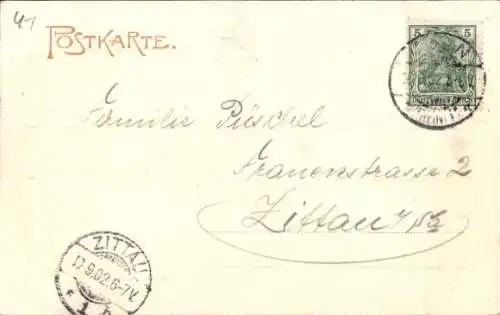 41
POSTKARTE.
5 5
Familie Püschel
Frauenstrasse 2
Zittau i/Sa
ZITTAU
12.9.02.6-7V.